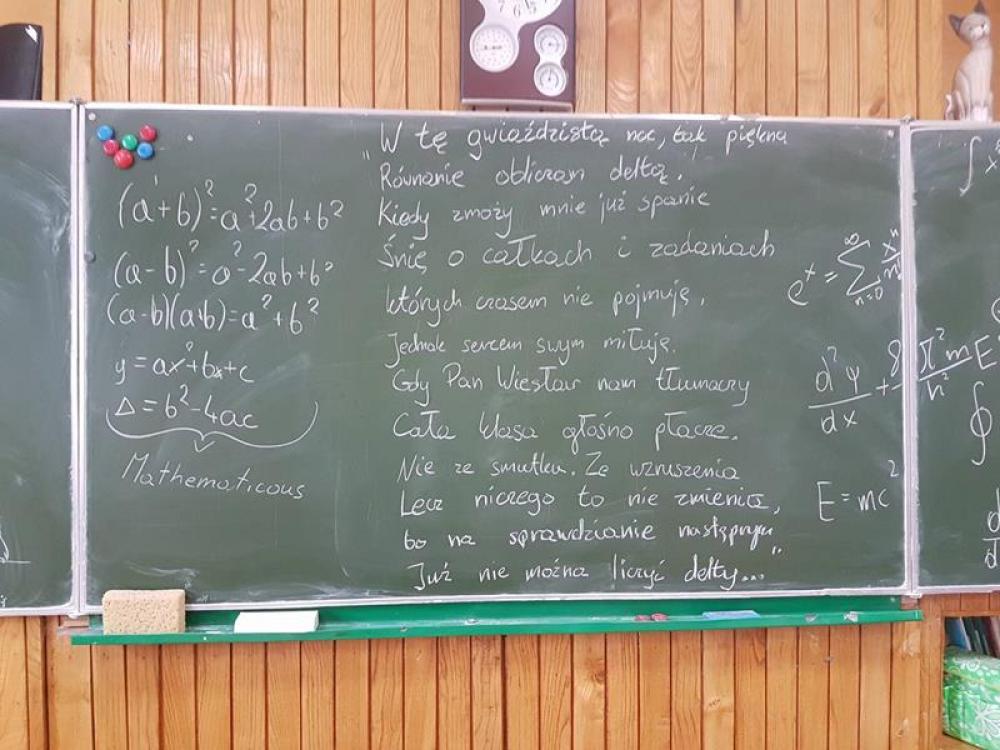 (a+b)²=a²+2ab+b²
(a-b)²=a²-2ab+b²
(a-b)(a+b)=a²+b²
y=ax²+bx+c
Δ=b²-4ac
Mathematicous
W tę gwiaździstą noc, tak piękną
"Równanie obliczam deltą.
Kiedy zmoży mnie już spanie
Śnię o całkach i zadaniach
których czasem nie pojmuję,
Jednak sercem swym miłuję.
Gdy Pan Wiesław nam tłumaczy
Cała klasa głośno płacze.
Nie ze smutku. Ze wzruszenia
Lecz niczego to nie zmienia,
bo na sprawdzianie następnym
Już nie można liczyć delty..."
e^x = ∑ n=0 ∞ x^n/n!
d²ψ/dx + 8π²m/h² E
E=mc²
∫x
∮
d/d